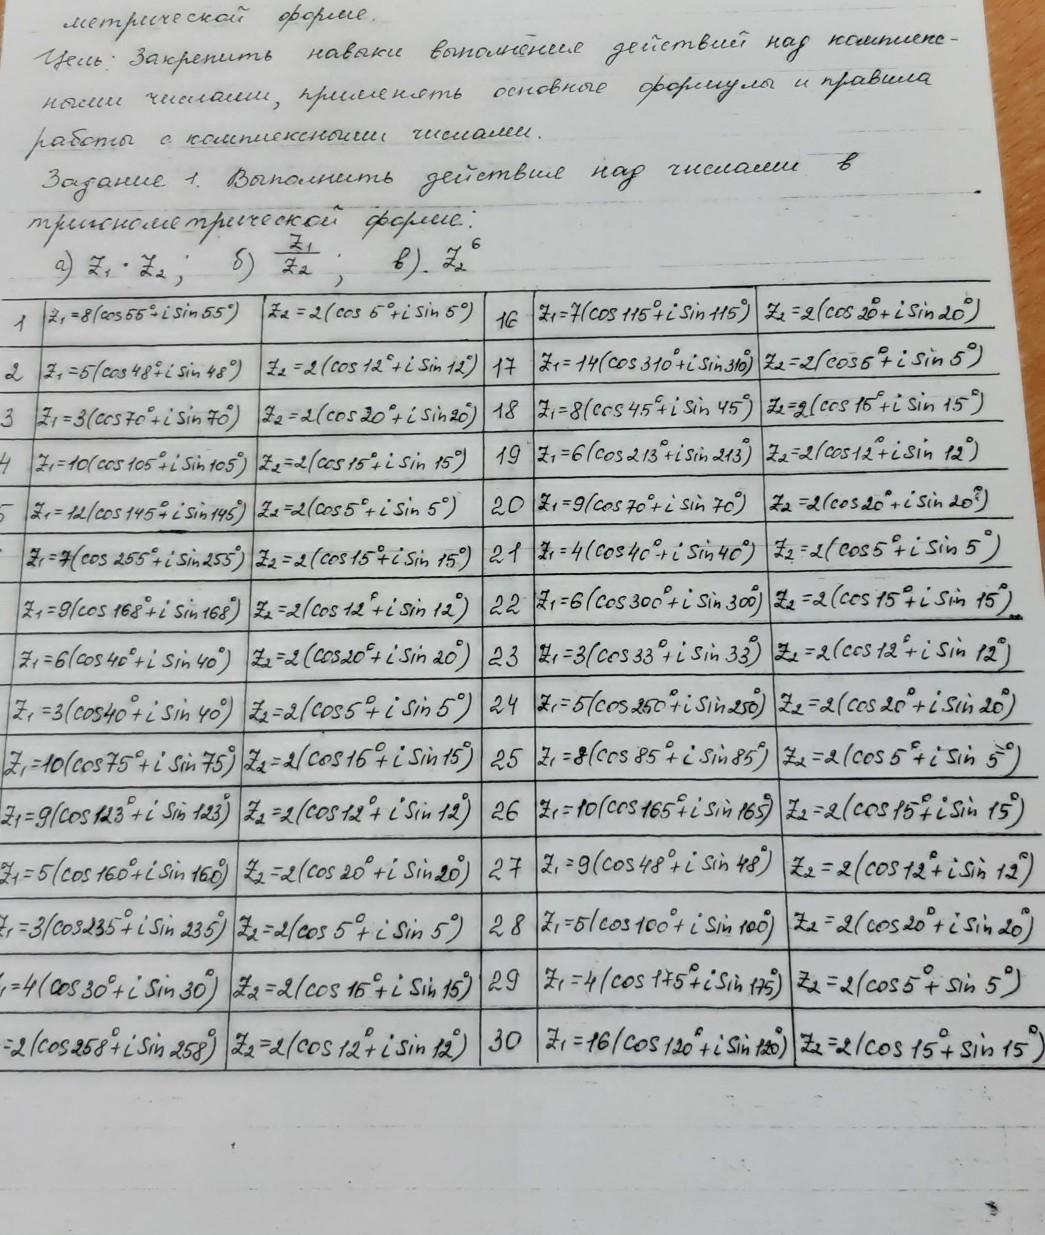 метрической форме.
Цель: Закрепить навыки выполнение действий над комплекс-
ными числами, применять основные формулы и правила
работы с комплексными числами.
Задание 1. Выполнить действие над числами в
тригонометрической форме:
а) Z₁ · Z₂; б) Z₁/Z₂; в). Z₂⁶
1 Z₁=8(cos55°+i sin55°) Z₂=2(cos 5°+i sin 5°) 16 Z₁=7(cos115°+i sin115°) Z₂=2(cos20°+i sin20°)
2 Z₁=5(cos48°+i sin48°) Z₂=2(cos12°+i sin12°) 17 Z₁=14(cos310°+i sin310°) Z₂=2(cos5°+i sin5°)
3 Z₁=3(cos70°+i sin70°) Z₂=2(cos20°+i sin20°) 18 Z₁=8(cos45°+i sin45°) Z₂=2(cos15°+i sin15°)
4 Z₁=10(cos105°+i sin105°) Z₂=2(cos15°+i sin15°) 19 Z₁=6(cos213°+i sin213°) Z₂=2(cos12°+i sin12°)
5 Z₁=12(cos145°+i sin145°) Z₂=2(cos5°+i sin5°) 20 Z₁=9(cos70°+i sin70°) Z₂=2(cos20°+i sin20°)
Z₁=7(cos255°+i sin255°) Z₂=2(cos15°+i sin15°) 21 Z₁=4(cos40°+i sin40°) Z₂=2(cos5°+i sin5°)
Z₁=9(cos168°+i sin168°) Z₂=2(cos12°+i sin12°) 22 Z₁=6(cos300°+i sin300°) Z₂=2(cos15°+i sin15°)
Z₁=6(cos40°+i sin40°) Z₂=2(cos20°+i sin20°) 23 Z₁=3(cos33°+i sin33°) Z₂=2(cos12°+i sin12°)
Z₁=3(cos40°+i sin40°) Z₂=2(cos5°+i sin5°) 24 Z₁=5(cos250°+i sin250°) Z₂=2(cos20°+i sin20°)
Z₁=10(cos75°+i sin75°) Z₂=2(cos15°+i sin15°) 25 Z₁=8(cos85°+i sin85°) Z₂=2(cos5°+i sin5°)
Z₁=9(cos123°+i sin123°) Z₂=2(cos12°+i sin12°) 26 Z₁=10(cos165°+i sin165°) Z₂=2(cos15°+i sin15°)
Z₁=5(cos160°+i sin160°) Z₂=2(cos20°+i sin20°) 27 Z₁=9(cos48°+i sin48°) Z₂=2(cos12°+i sin12°)
Z₁=3(cos235°+i sin235°) Z₂=2(cos5°+i sin5°) 28 Z₁=5(cos100°+i sin100°) Z₂=2(cos20°+i sin20°)
₁=4(cos30°+i sin30°) Z₂=2(cos15°+i sin15°) 29 Z₁=4(cos175°+i sin175°) Z₂=2(cos5°+sin5°)
=2(cos258°+i sin258°) Z₂=2(cos12°+i sin12°) 30 Z₁=16(cos120°+i sin120°) Z₂=2(cos15°+sin15°)